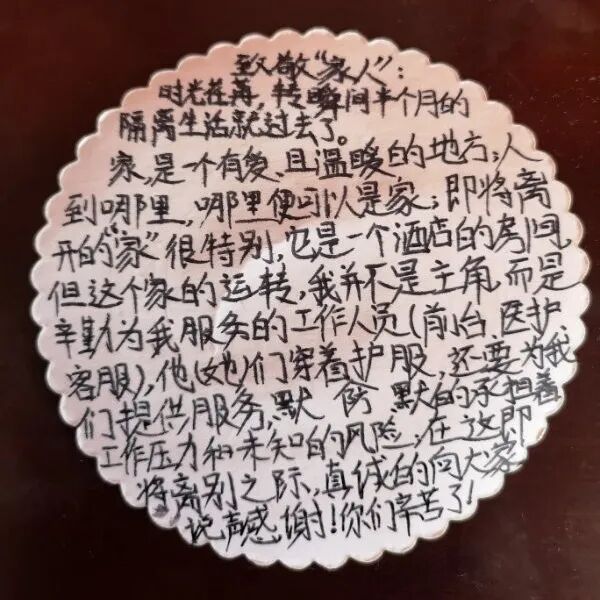 致敬“家人”：
时光荏苒，转瞬间半个月的
隔离生活就过去了。
家，是一个有爱，且温暖的地方；人
到哪里，哪里便可以是家；即将离
开的“家”很特别，它是一个酒店的房间，
但这个家的运转，我并不是主角，而是
辛勤为我服务的工作人员（前台、医护、
客服），他（她）们穿着护服，还要为我
们提供服务，默 默的承担着
工作压力和未知的风险，在这即
将离别之际，真诚的向大家
说声感谢！你们辛苦了！